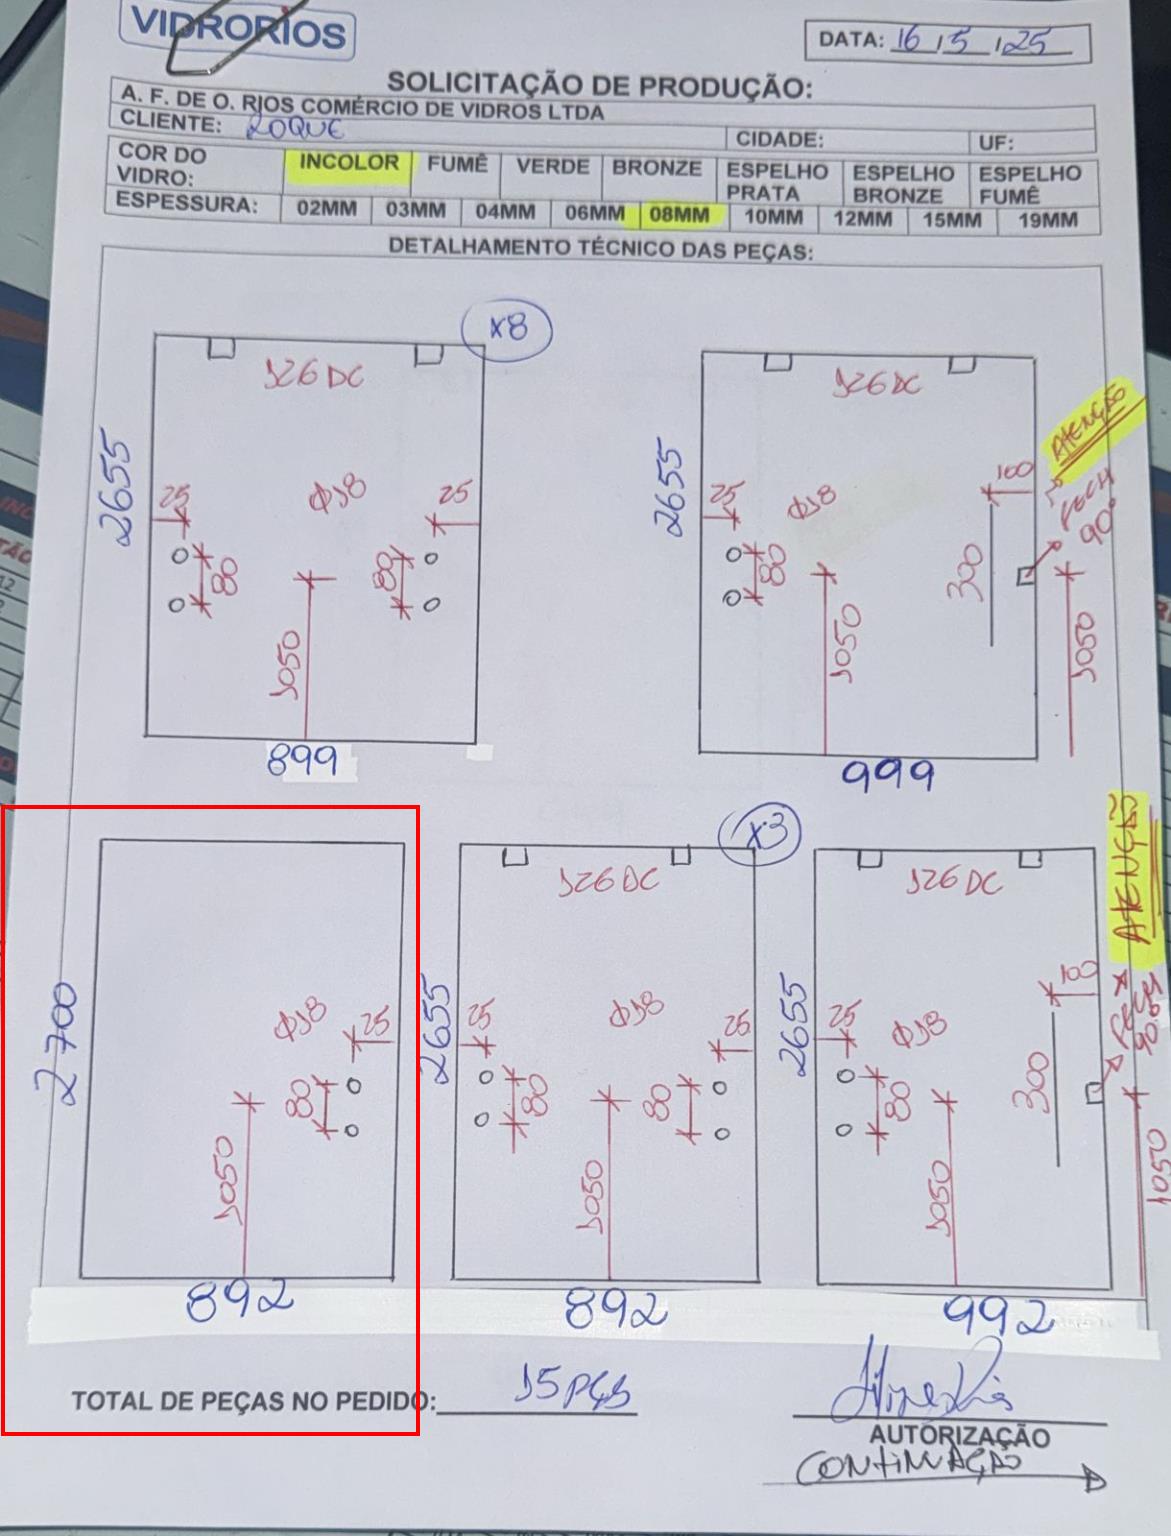 VIDRORIOS
DATA: 16/5/25
SOLICITAÇÃO DE PRODUÇÃO:
A. F. DE O. RIOS COMÉRCIO DE VIDROS LTDA
CLIENTE: ROQUE CIDADE: UF:
COR DO VIDRO: INCOLOR FUMÊ VERDE BRONZE ESPELHO PRATA ESPELHO BRONZE ESPELHO FUMÊ
ESPESSURA: 02MM 03MM 04MM 06MM 08MM 10MM 12MM 15MM 19MM
DETALHAMENTO TÉCNICO DAS PEÇAS:
x8
126 DC
2655
25 Φ18 25
80 80
1050
899
126 DC
2655
25 Φ18 100
ATENÇÃO
FECH 90°
80 300
1050 1050
999
2700
Φ18 25
80
1050
892
x3
126 DC
2655
25 Φ18 25
80 80
1050
892
126 DC
2655
25 Φ18 100
ATENÇÃO
FECH 90°
80 300
1050 1050
992
TOTAL DE PEÇAS NO PEDIDO: 15 PÇS
AUTORIZAÇÃO
CONTINUAÇÃO